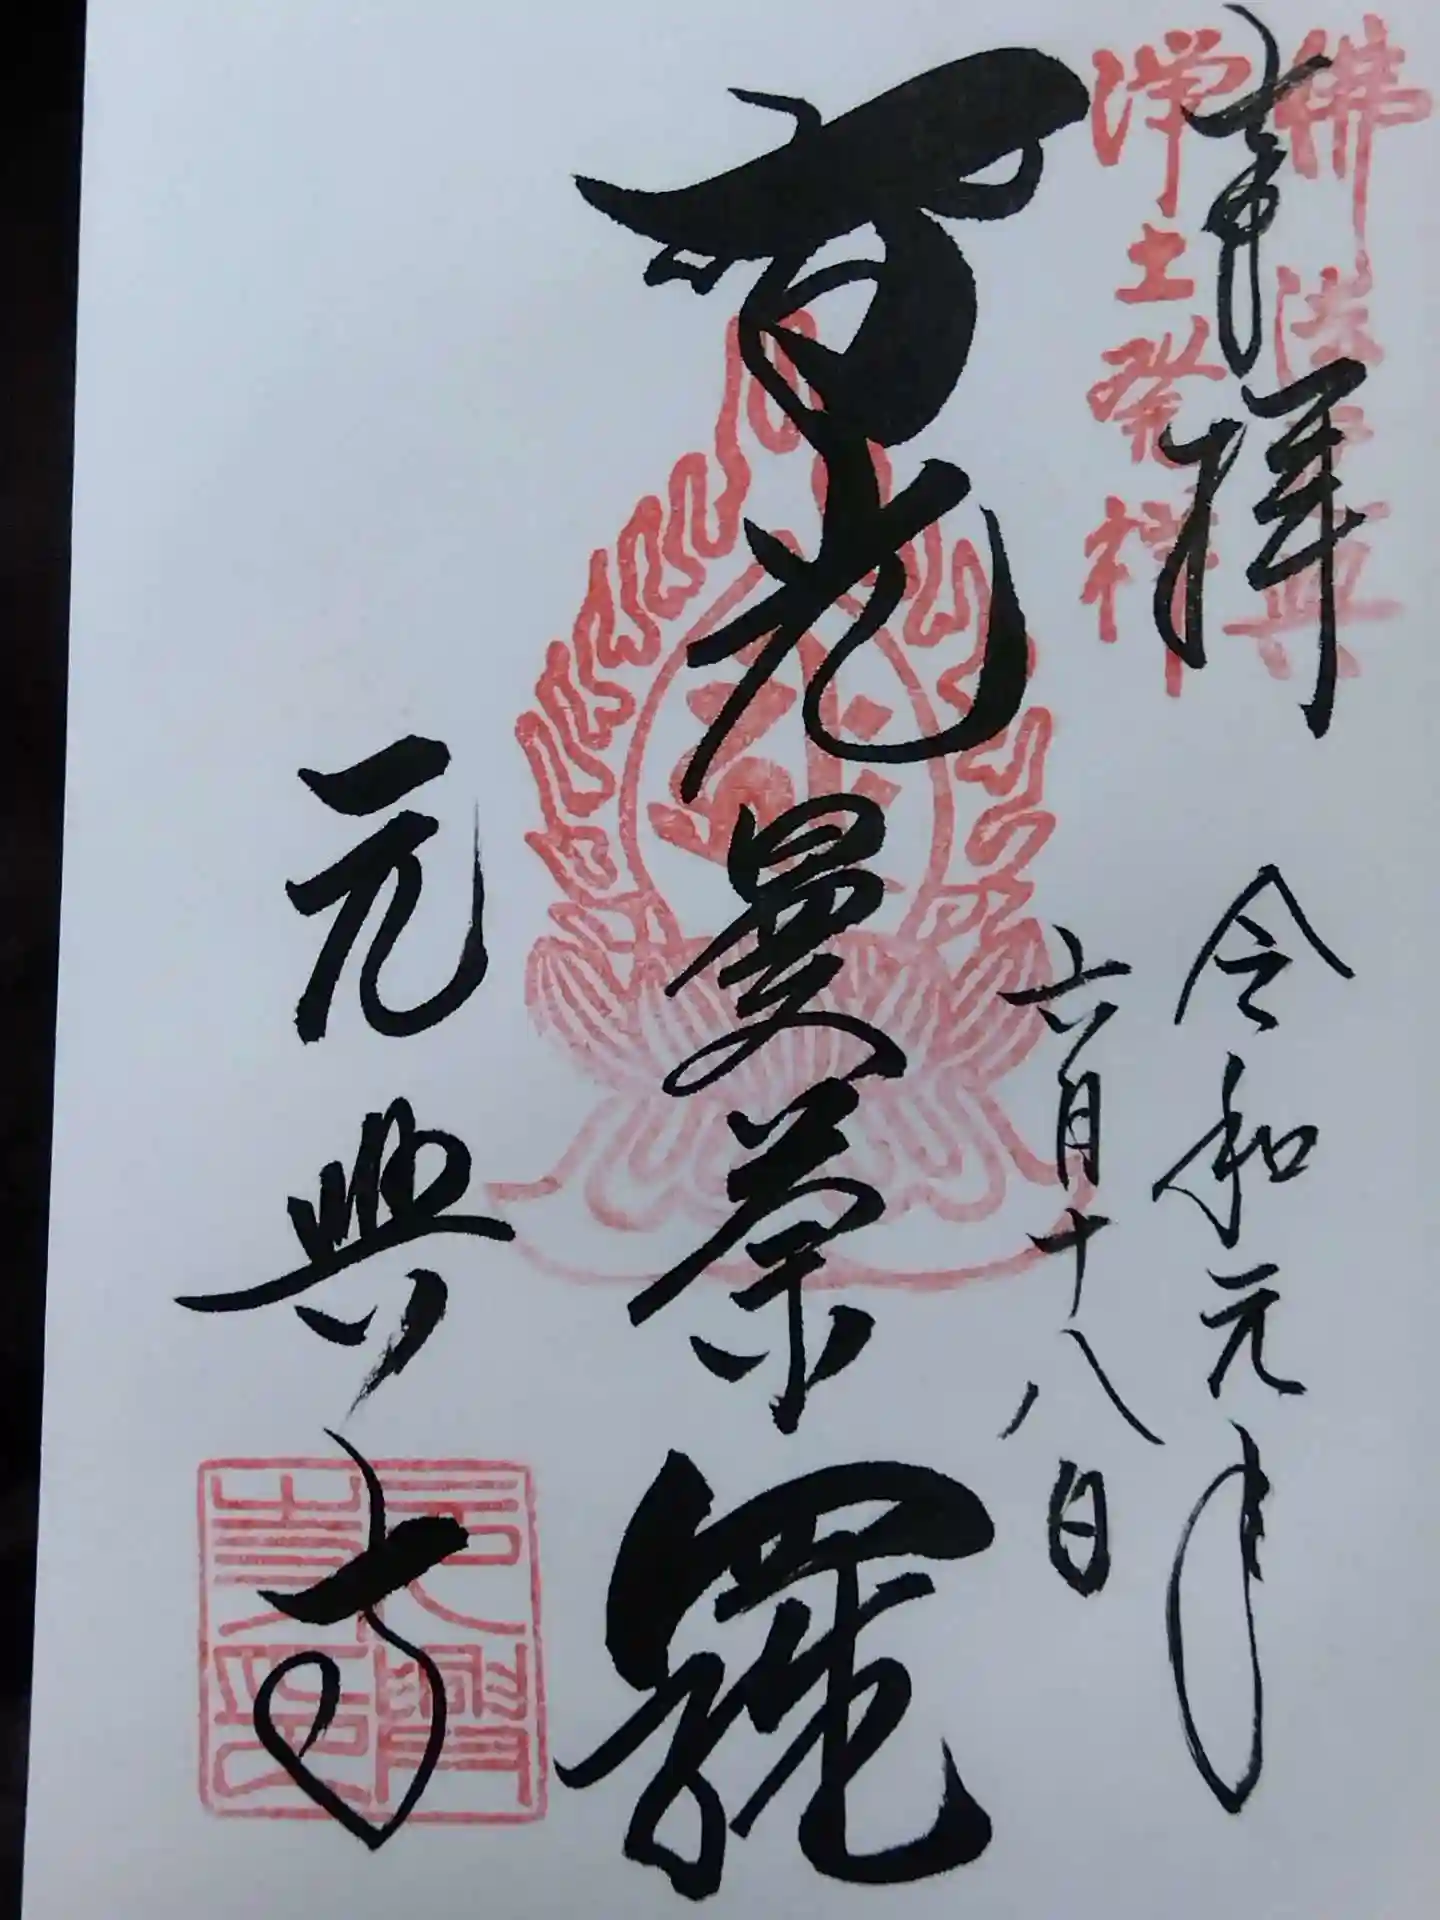 佛法元興
淨土發祥
奉拝
令和元年
六月十八日
智光曼荼羅
元興寺
元興
寺印